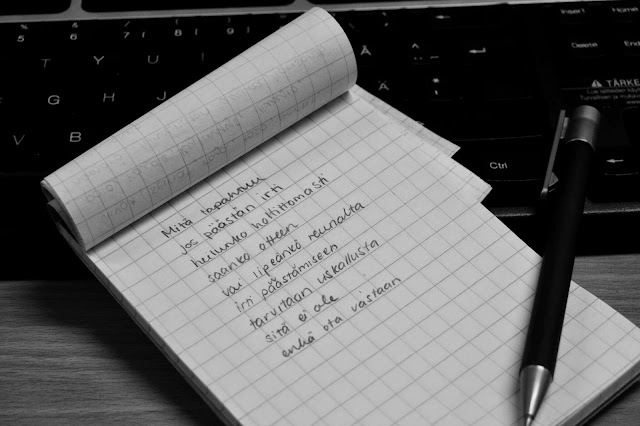 5
6
7
8
9
T
Y
U
G
H
V
B
Å
Ä
Insert
Home
Delete
End
TÄRKE
Ctrl
Mitä tapahtuu
jos päästän irti
heilunko hallittomasti
saanko otteen
vai lipeänkö reunalta
irti päästämiseen
tarvitaan uskallusta
sitä ei ole
enkä ota vastaan